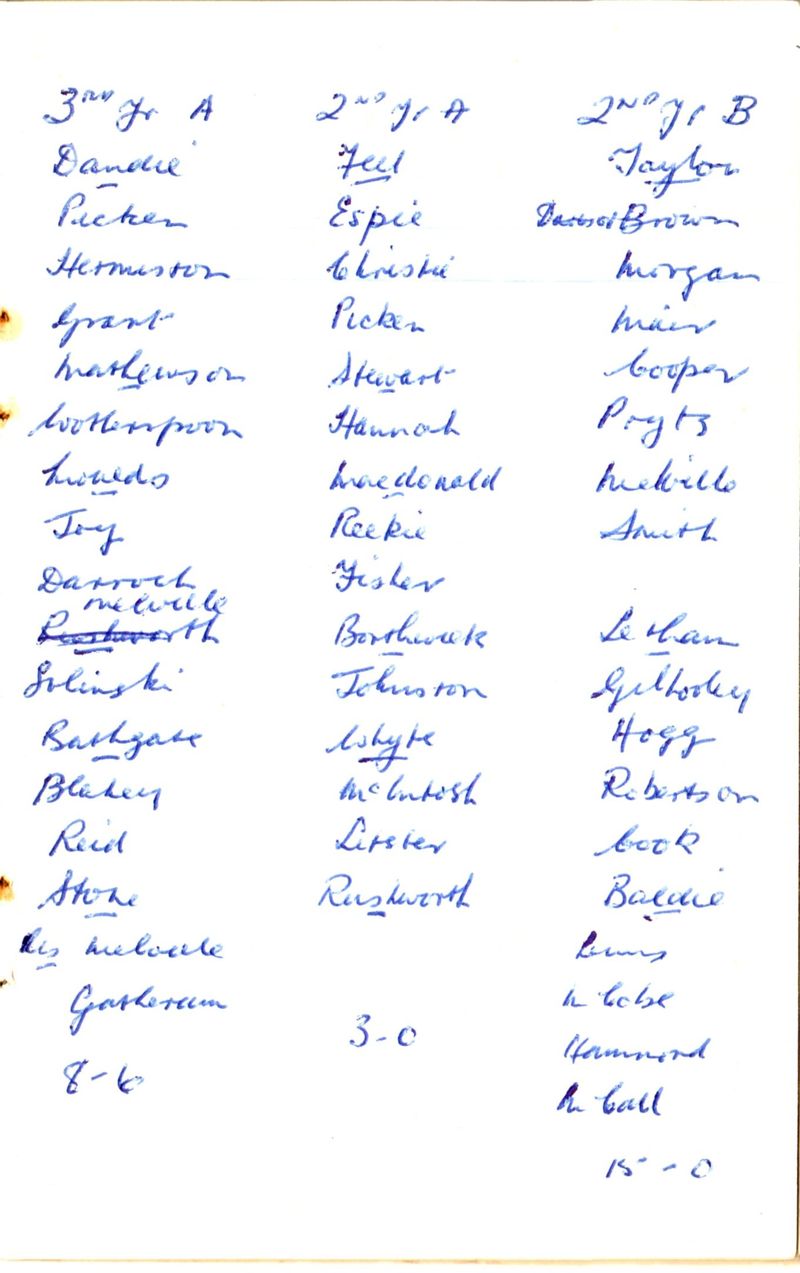 3RD Yr A
Dandie
Picken
Hermiston
Grant
Mathewson
Wotherspoon
Moulds
Joy
Darroch
Melville
Rushworth
Solinski
Bathgate
Blakey
Reid
Stone
Res Melville
Gatherum
8-6
2ND Yr A
Fell
Espie
Christie
Picken
Stewart
Hannah
Macdonald
Reekie
Fisher
Borthwick
Johnston
Whyte
McIntosh
Litster
Rushworth
3-0
2ND Yr B
Taylor
Brown
Morgan
Mair
Cooper
Prytz
Melville
Smith
Letham
Gilhooley
Hogg
Robertson
Cook
Baldie
McCabe
Hammond
McCall
15-0